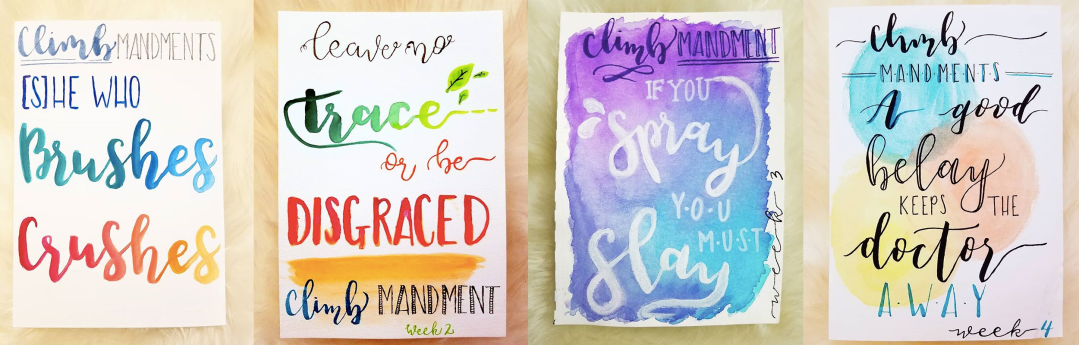 Climb MANDMENTS
[S]HE WHO
Brushes
Crushes
leave no
trace
or be
DISGRACED
Climb MANDMENT
week 2
Climb MANDMENT
IF YOU
Spray
Y·O·U
MUST
Slay
week 3
Climb
MANDMENTS
A good
belay
KEEPS THE
doctor
A·W·A·Y
week 4